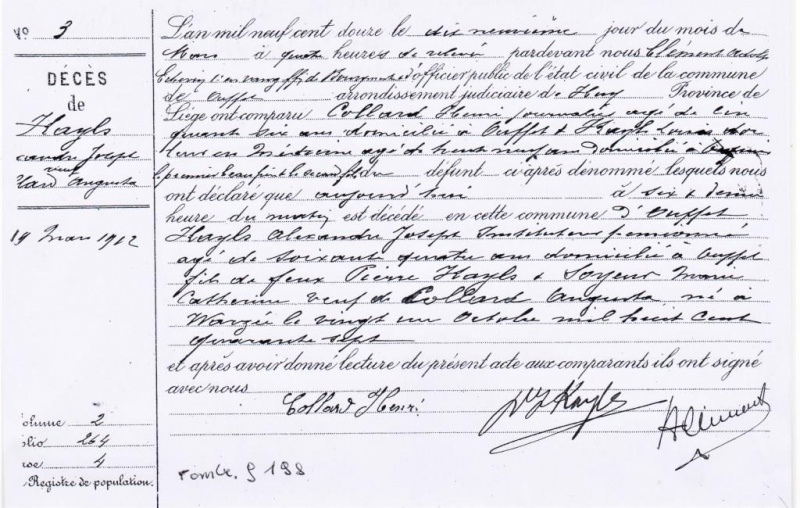 No 3
DÉCÈS
de
Hayls
xandre Joseph
veuf
llard Augusta
19 Mars 1912
olume 2
olio 264
ase 4
Registre de population.
L'an mil neuf cent douze le dix neuvième jour du mois de
Mars à quatre heures de relevé pardevant nous Clément
Echevin d'officier public de l'état civil de la commune
de Ouffet arrondissement judiciaire de Huy Province de
Liège ont comparu Collard Henri journalier agé de cin
quante six ans domicilié à Ouffet & Hayls Louis doc
teur en Médecine agé de neuf ans domicilié à
le premier beau frère le second fils du défunt ci après dénommé lesquels nous
ont déclaré que aujourd'hui à six & demie
heure du matin est décédé en cette commune d'Ouffet
Hayls Alexandre Joseph Instituteur pensionné
agé de soixante quatre ans domicilié à Ouffet
fils de feux Pierre Hayls & Soyeur Marie
Catherine veuf de Collard Augusta, né à
Warzée le vingt un Octobre mil huit cent
quarante sept
et après avoir donné lecture du présent acte aux comparants ils ont signé
avec nous
Collard Henri
Hayls
AClément
Tombe. g 198